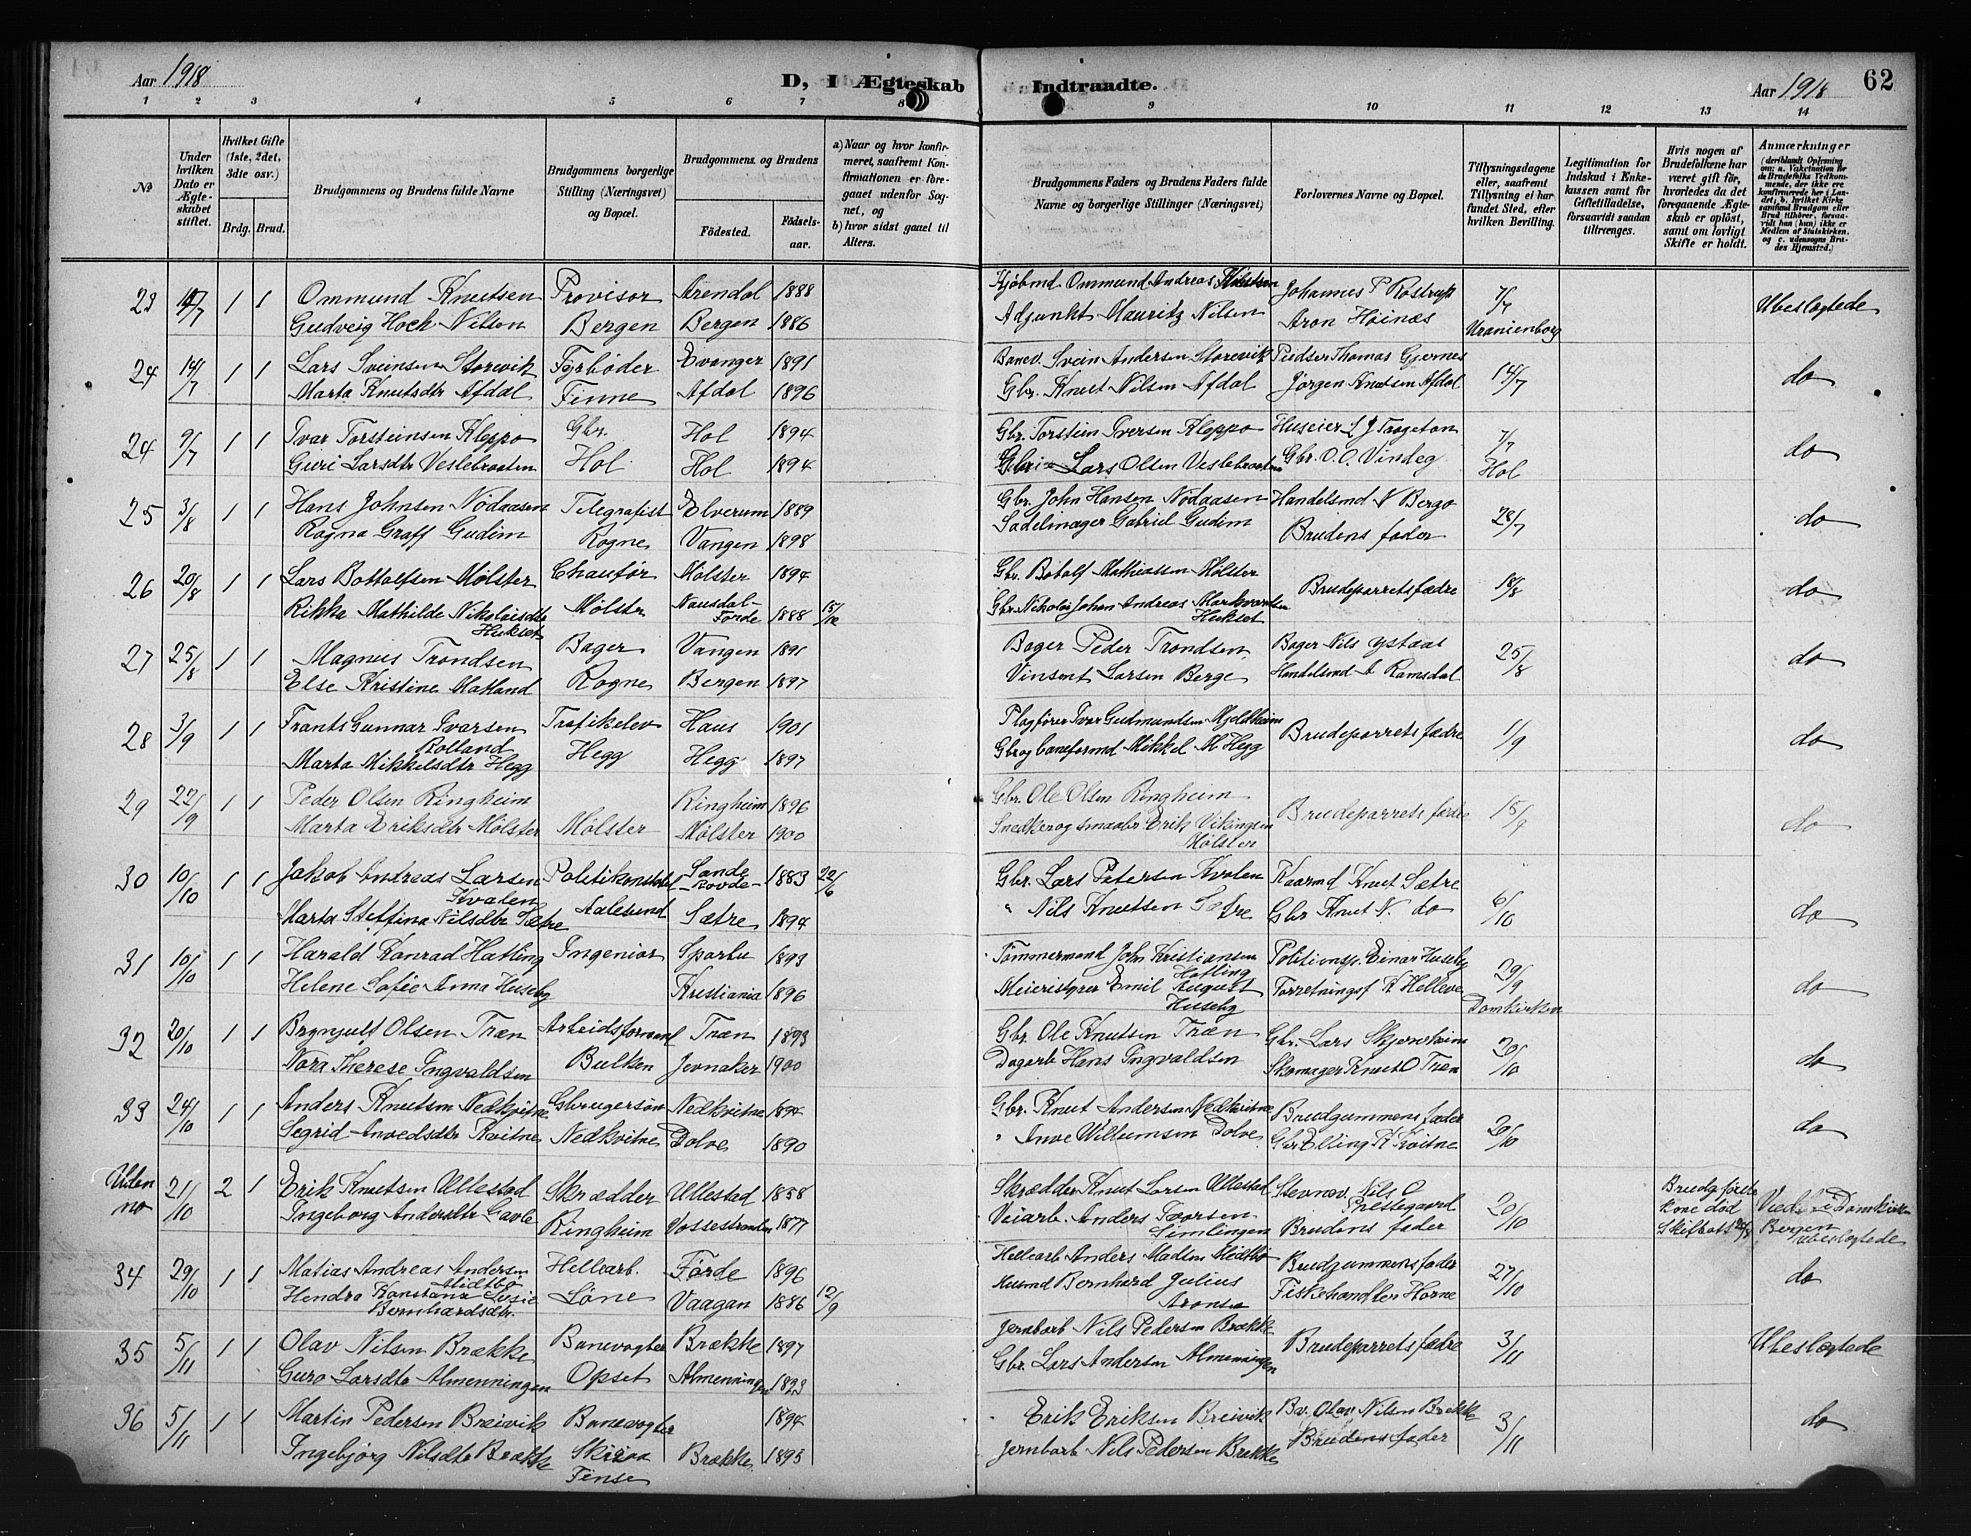 Aar 1918
D, I Ægteskab Indtraadte.
Aar 1918
62
1 2 3 4 5 6 7 8 9 10 11 12 13 14
No
Under hvilken Dato er Ægteskabet stiftet.
Hvilket Gifte (1ste, 2det, 3die osv.)
Brdg. Brud.
Brudgommens og Brudens fulde Navne
Brudgommens borgerlige Stilling (Næringsvei) og Bopæl.
Brudgommens og Brudens
Fødested.
Fødselsaar.
a) Naar og hvor konfirmeret, saafremt Konfirmationen er foregaaet udenfor Sognet, og
b) hvor sidst gaaet til Alters.
Brudgommens Faders og Brudens Faders fulde Navne og borgerlige Stillinger (Næringsvei)
Forlovernes Navne og Bopæl.
Tillysningsdagene eller, saafremt Tillysning ei har fundet Sted, efter hvilken Bevilling.
Legitimation for Indskud i Enkekassen samt for Giftetilladelse, forsaavidt saadan tiltrænges.
Hvis nogen af Brudefolkene har været gift før, hvorledes da det foregaaende Ægteskab er opløst, samt om lovligt Skifte er holdt.
Anmærkninger
(deriblandt Oplysning om: a. Vaksination for de Brudefolks Vedkommende, der ikke ere konfirmerede her i Landet; b. hvilket Kirkesamfund Brudgom eller Brud tilhører, forsaavidt han (hun) ikke er Medlem af Statskirken, og c. udensogns Brudes Hjemsted.)
23 14/7 1 1 Ommund Knutsen Provisor Arendal 1888 Kjøbmd Ommund Andreas Knutsen Johannes P Rostrup 7/7 Ubeslægtede
Gudveig Hoch Nilsen Bergen Bergen 1886 Adjunkt Mauritz Nilsen Aron Høinæs Uranienborg
24 14/7 1 1 Lars Sveinsen Storevik Fyrbøder Evanger 1891 Banev. Svein Andersen Storevik Pudser Thomas Gjernes 14/7 do
Marta Knutsdtr Afdal Finne Afdal 1896 Gbr. Knut Nilsen Afdal Jørgen Knutsen Afdal
24 9/7 1 1 Ivar Torsteinsen Kleppo Gbr. Hol 1894 Gbr. Torstein Iversen Kleppo Huseier L J Trageton 7/7 do
Guri Larsdtr Veslebraaten Hol Hol 1894 Lars Olsen Veslebraaten Gbr. O. O. Vindeg Hol
25 3/8 1 1 Hans Johnsen Nødaasen Telegrafist Elverum 1889 Gbr. John Hansen Nødaasen Handelsmd N Bergo 28/7 do
Ragna Graff Gudim Rogne Vangen 1898 Sadelmager Gabriel Gudim Brudens fader
26 20/8 1 1 Lars Bottolfsen Mølster Chaufør Mølster 1894 Gbr. Botolf Mathiassen Mølster Brudeparrets fædre 18/8 do
Rikka Mathilde Nikolaisdtr Mølster Nausdal- 1888 15/10 Gbr. Nikolai Johan Andreas Markvardsen
Hukset Førde Hukset
27 25/8 1 1 Magnus Trondsen Bager Vangen 1891 Bager Peder Trondsen Bager Nils Ystaas 25/8 do
Else Kristine Matland Rogne Bergen 1897 Vinsent Larsen Berge Handelsmd A Ramsdal
28 3/9 1 1 Frants Gunnar Ivarsen Trafikelev Haus 1901 Ivar Gudmundsen Mjeldheim Brudeparrets fædre 1/9 do
Rolland
Marta Mikkelsdtr Hegg Hegg Hegg 1897 Gbr og baneformd Mikkel M Hegg
29 22/9 1 1 Peder Olsen Ringheim Ringheim 1896 Gbr. Ole Olsen Ringheim Brudeparrets fædre 15/9 do
Marta Eriksdtr Mølster Mølster Mølster 1900 Snedker og smaabr Erik Vikingsen
Mølster
30 10/10 1 1 Jakob Andreas Larsen Politikonstabel Sande 1883 22/6 Gbr. Lars Petersen Kvalen Kaarmd Knut Sætre 6/10 do
Kvalen Aalesund
Marta Steffina Nilsdtr Sætre Sætre 1894 " Nils Knutsen Sætre Gbr Knut N. do
31 10/10 1 1 Harald Konrad Hatling Ingeniør Sparbu 1893 Tømmermand John Kristiansen Einar Huseby 29/9 do
Hatling
Helene Sofie Anna Huseby Kristiania 1896 Meieristyrer Emil August Forretningsf K Helleve Domkirken
Huseby
32 20/10 1 1 Brynjulf Olsen Træn Arbeidsformand Træn 1893 Gbr. Ole Knutsen Træn Gbr. Lars Skjerveheim 20/10 do
Nora Therese Ingvaldsen Bulken Jevnaker 1900 Dagarb Hans Ingvaldsen Skomager Knut O Træn
33 24/10 1 1 Anders Knutsen Nedkvitne Gbrugersøn Nedkvitne 1894 Gbr. Knut Andersen Nedkvitne Brudgummens fader 20/10 do
Segrid Anvedsdtr Kvitne Nedkvitne Dolve 1890 " Anve Willumsen Dolve Gbr Elling K Kvitne
Uden no 21/10 2 1 Erik Knutsen Ullestad Skrædder Ullestad 1858 Skrædder Knut Larsen Ullestad Stevnev. Nils O Prestegaard 20/10 Brudg første kone død Viede i Domkirken
Ingeborg Andersdtr Gavle Ringheim Vossestranden 1877 Veiarb. Anders Taorsen Simlingen Brudens fader Bergen ubeslægtede
34 29/10 1 1 Matias Andreas Andersen Hellearb. Førde 1896 Hellearb Anders Madsen Midtbø Brudgummens fader 27/10 do
Midtbø
Hendra Konstanse Lusie Løne Vaagan 1886 12/9 Husmd Bernhard Julius Fiskehandler Horne
Bernhardsdtr. Aronsen
35 5/11 1 1 Olav Nilsen Brække Banevogter Brække 1897 Jernbarb Nils Pedersen Brække Brudeparrets fædre 3/11 Ubeslægtede
Guro Larsdtr Almenningen Opset Almenningen 1893 Gbr. Lars Andersen Almenningen
36 5/11 1 1 Martin Pedersen Breivik Banevogter 1894 Erik Eriksen Breivik Bv. Olav Nilsen Brække 3/11 do
Ingebjørg Nilsdtr Brække Brække 1895 Jernbarb Nils Pedersen Brække Brudens fader
Finse